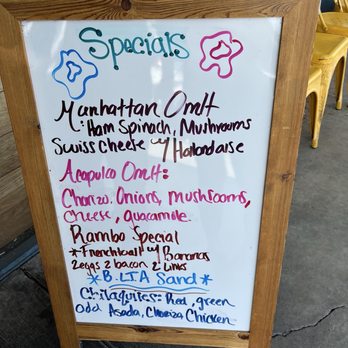 Specials
Manhattan Omlt
Ham Spinach, Mushrooms
Swiss Cheese w/ Hollandaise
Acapulco Omlt:
Chorizo. Onions, Mushrooms,
Cheese, Guacamole
Rambo Special
*Frenchtoast w/ Bananas
2 eggs 2 bacon 2 Links
*B.L.T.A Sand*
Chilaquiles: Red, green
Add Asada, Chorizo, Chicken